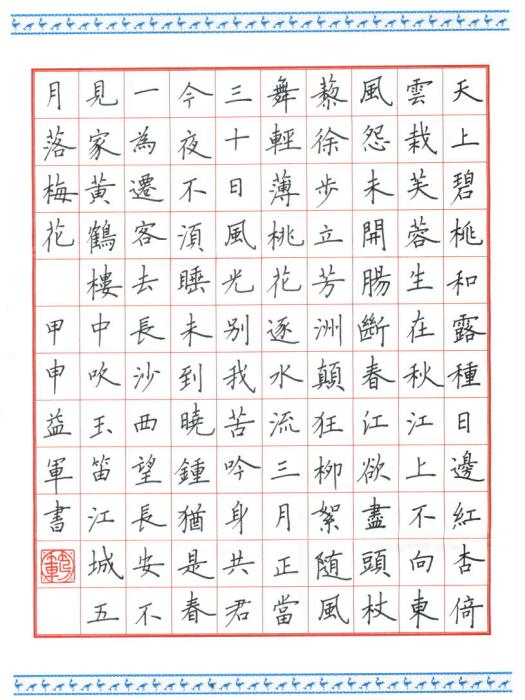 天上碧桃和露種日邊紅杏倚
雲栽芙蓉生在秋江上不向東
風怨未開腸斷春江欲盡頭杖
藜徐步立芳洲顛狂柳絮随風
舞輕薄桃花逐水流三月正當
三十日風光別我苦吟身共君
今夜不須睡未到曉鍾猶是春
一為遷客去長沙西望長安不
見家黃鶴樓中吹玉笛江城五
月落梅花 甲申益軍書